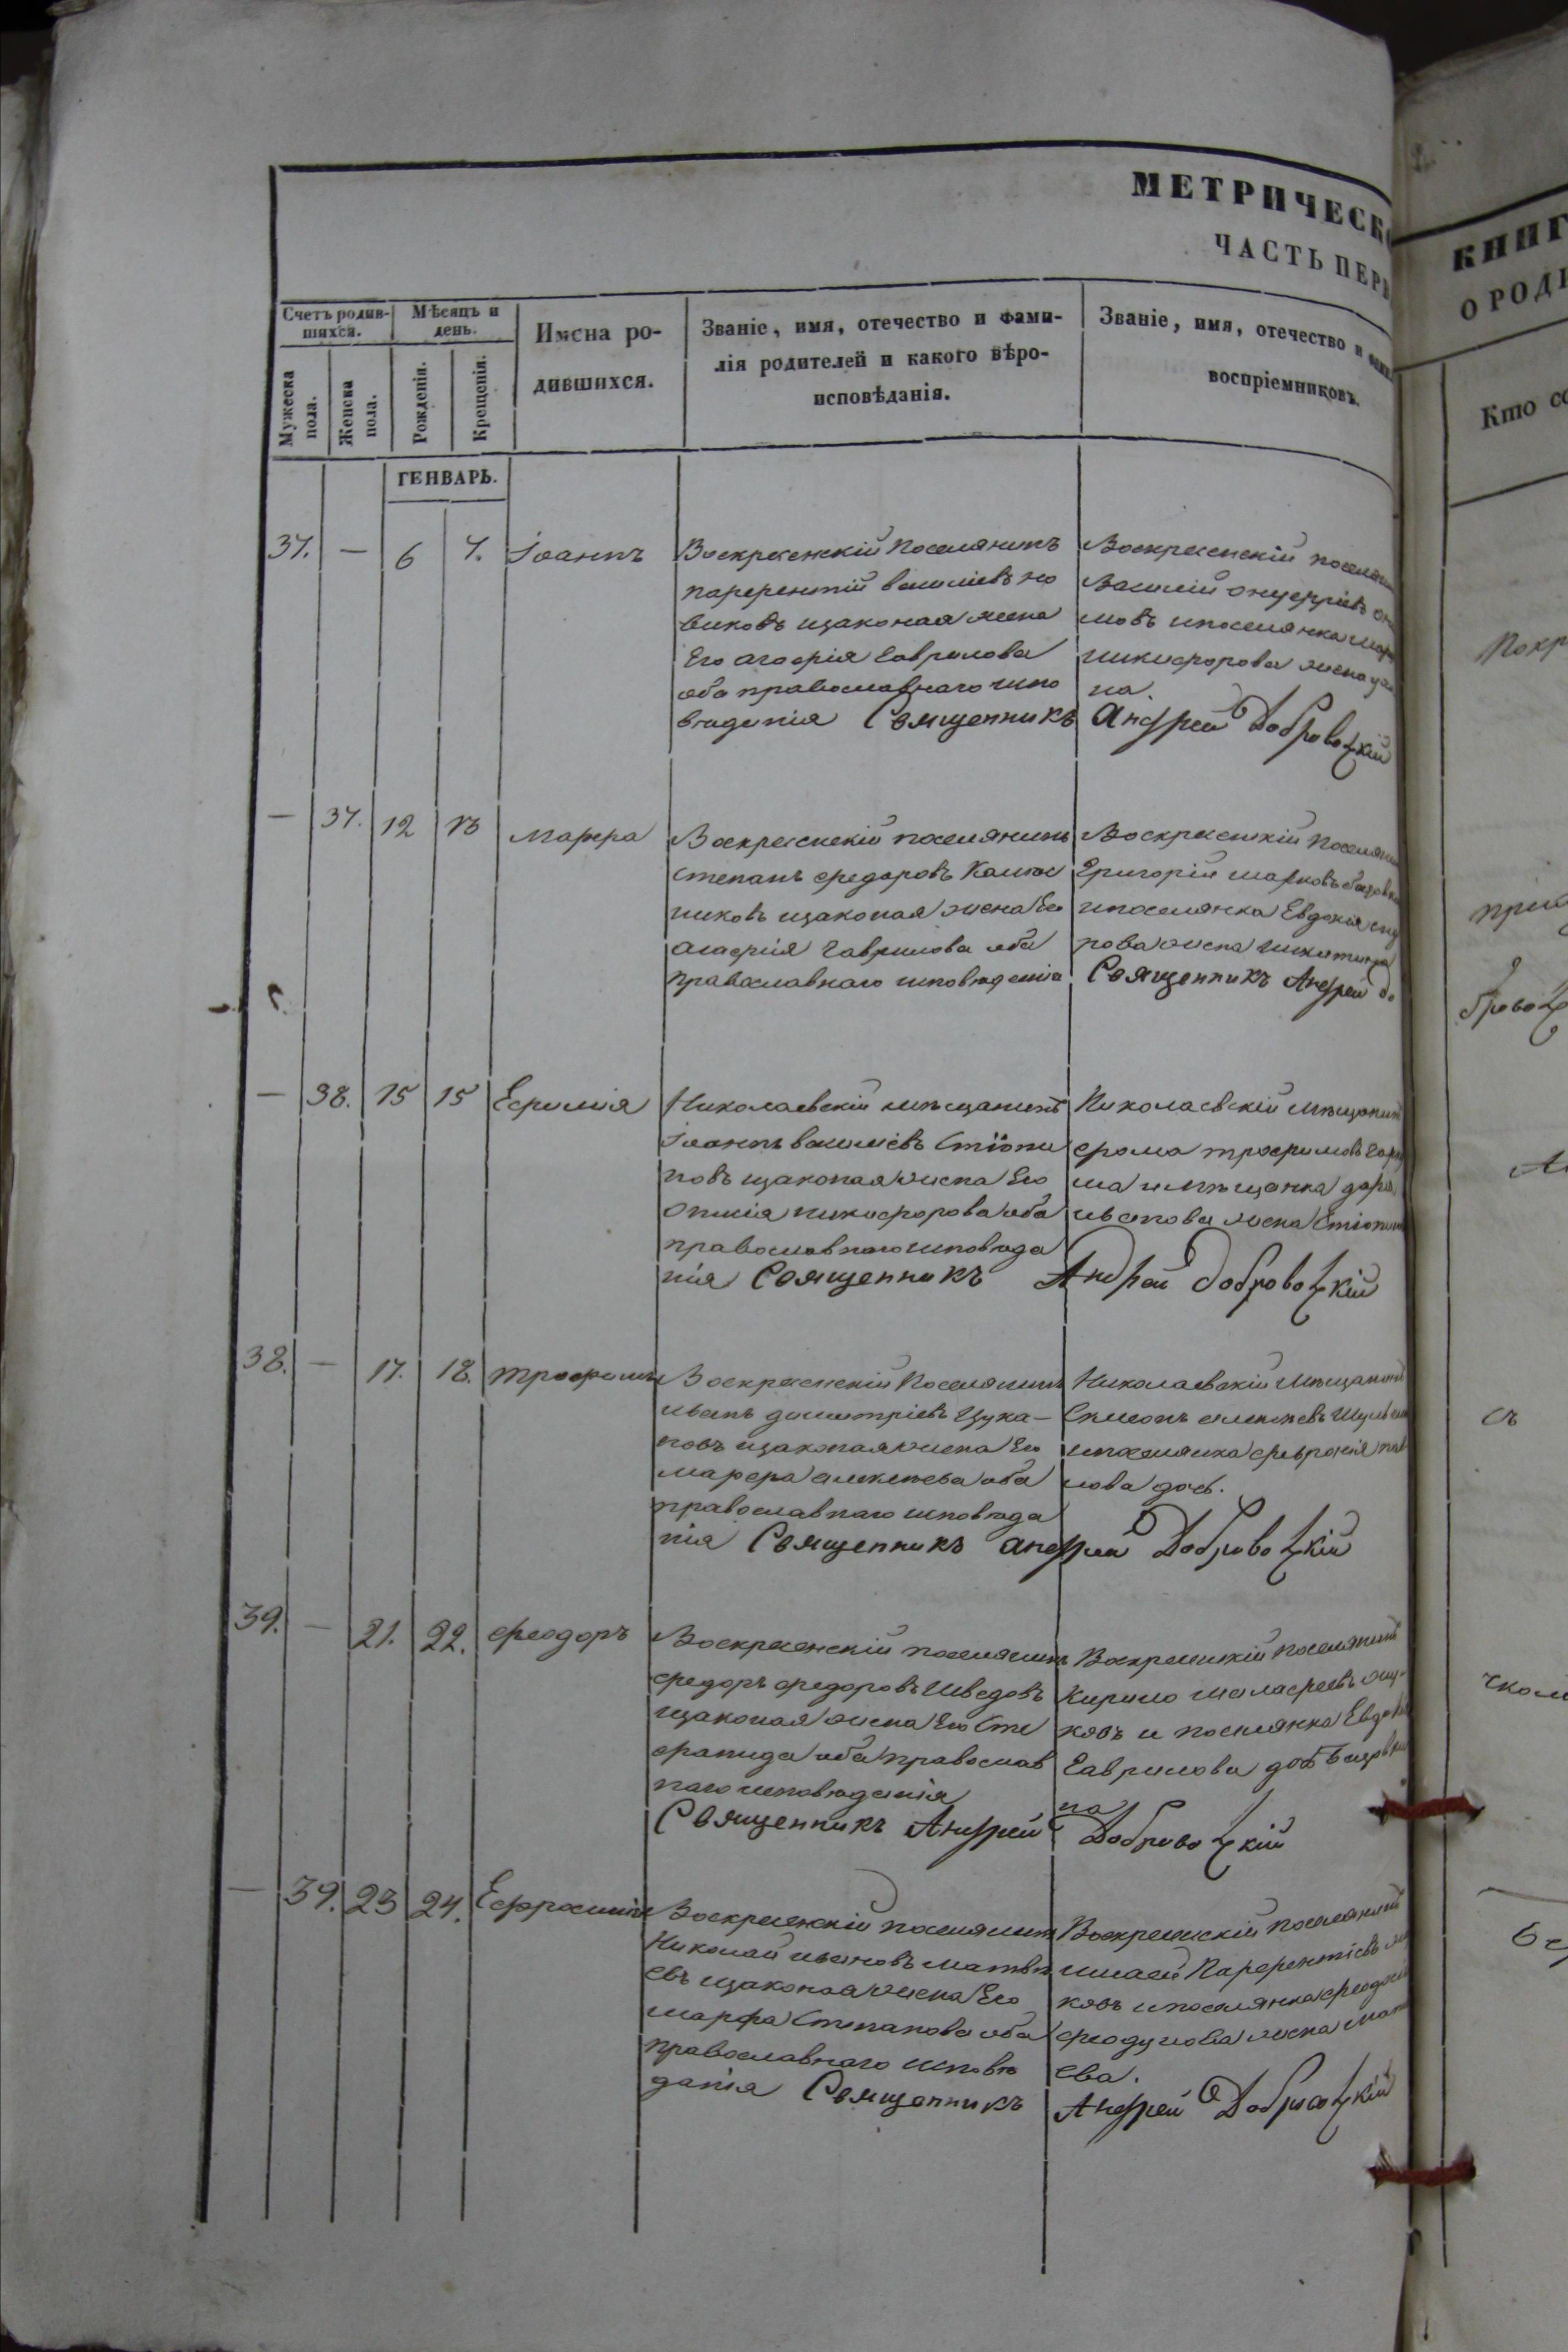 МЕТРИЧЕСК
ЧАСТЬ ПЕРВ
КНИГ
О РОДИ
Счетъ родив-
шихся.
Мѣсяцъ и
день.
Мужеска
пола.
Женска
пола.
Рожденія.
Крещенія.
Имена ро-
дившихся.
Званіе, имя, отечество и фами-
лія родителей и какого вѣро-
исповѣданія.
Званіе, имя, отечество и
воспріемниковъ.
Кто
ГЕНВАРЬ.
37. — 6 7. Іоаннъ
Воскресенскій Поселянинъ
парфентій василіевъ но
виковъ изаконая жена
Его агафія Гаврилова
оба православнаго испо
вѣданія Священникъ
Воскресенскій поселян
Василій онуфріевъ
мовъ ипоселянка
никифорова жена
на.
Андрей Доброволскій
— 37. 12 13 Марфа
Воскресенскій поселянинъ
степанъ федоровъ
никовъ изаконая жена Его
агафія Гаврилова оба
православнаго исповѣденія
Воскресенскій Поселян
Григорій марковъ
ипоселянка Евдокія
рова жена никитина
Священникъ Андрей До
— 38. 15 15 Ефимія
Николаевскій мѣщанинъ
Іоаннъ василіевъ Стіопи
новъ изаконая жена Его
никифорова оба
православнаго исповѣда
нія Священникъ
Николаевскій мѣщанин
фома трофимовъ
ма имѣщанка дарія
иванова жена Стіопин
Андрей Доброволскій
38. — 17. 18. трофимъ
Воскресенскій Поселянинъ
иванъ дмитріевъ Цука-
новъ изаконая жена Его
марфа алексѣева оба
православнаго исповѣда
нія Священникъ
Николаевскій мѣщанинъ
Симонъ алексѣевъ
ипоселянка февронія пав
лова дочь.
андрей Доброволскій
39. — 21. 22. феодоръ
Воскресенскій поселянинъ
федоръ федоровъ Шведовъ
изаконая жена Его Сте
фанида оба православ
наго исповѣденія
Священникъ Андрей
Воскресенскій поселянинъ
Кирило
ковъ и поселянка Евдок
Гаврилова дочь
на
Доброволскій
— 39. 23 24. Ефросинія
Воскресенскій поселянинъ
Николай ивановъ матвѣ
евъ изаконая жена Его
марфа Степанова оба
православнаго исповѣ
данія Священникъ
Воскресенскій поселянинъ
Парфентіевъ
ковъ ипоселянка феодос
жена мат
ева.
Андрей Доброволскій